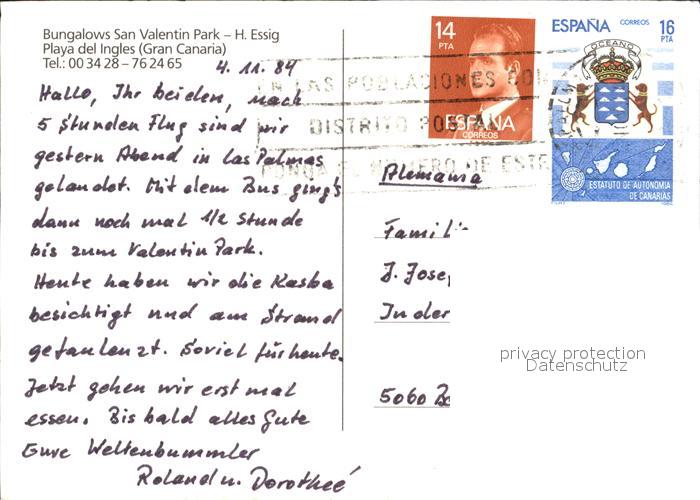 Bungalows San Valentin Park – H. Essig
Playa del Ingles (Gran Canaria)
Tel.: 00 34 28 – 76 24 65
4. 11. 84
Hallo, Ihr beiden, nach
5 Stunden Flug sind wir
gestern Abend in Las Palmas
gelandet. Mit dem Bus ging's
dann noch mal 1/2 Stunde
bis zum Valentin Park.
Heute haben wir die Kasba
besichtigt und am Strand
gefaulenzt. Soviel für heute.
Jetzt gehen wir erst mal
essen. Bis bald alles Gute
Eure Weltenbummler
Roland u. Dorotheé
14
PTA
ESPAÑA
CORREOS
ESPAÑA CORREOS 16
PTA
OCEANO
ESTATUTO DE AUTONOMIA
DE CANARIAS
EN LAS POBLACIONES CON
DISTRITO POSTAL
PONGA EL NUMERO DE ESTE
Alemania
Famili
J. Josep
In der
5060
privacy protection
Datenschutz